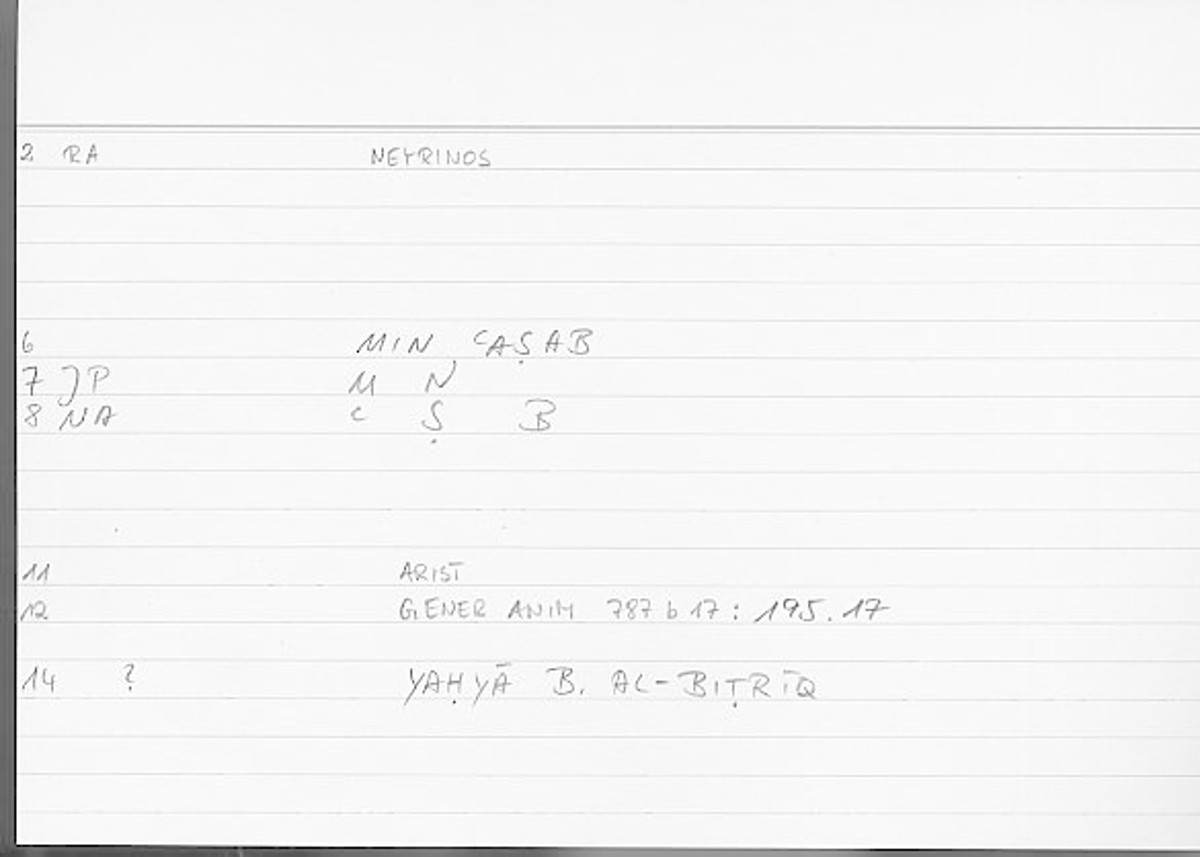 2 RA NEYRINOS
6 MIN ʿAṢAB
7 JP M N
8 NA ʿ Ṣ B
11 ARIST
12 GENER ANIM 787 b 17 : 195.17
14 ? YAḤYĀ B. AL-BIṬRĪQ